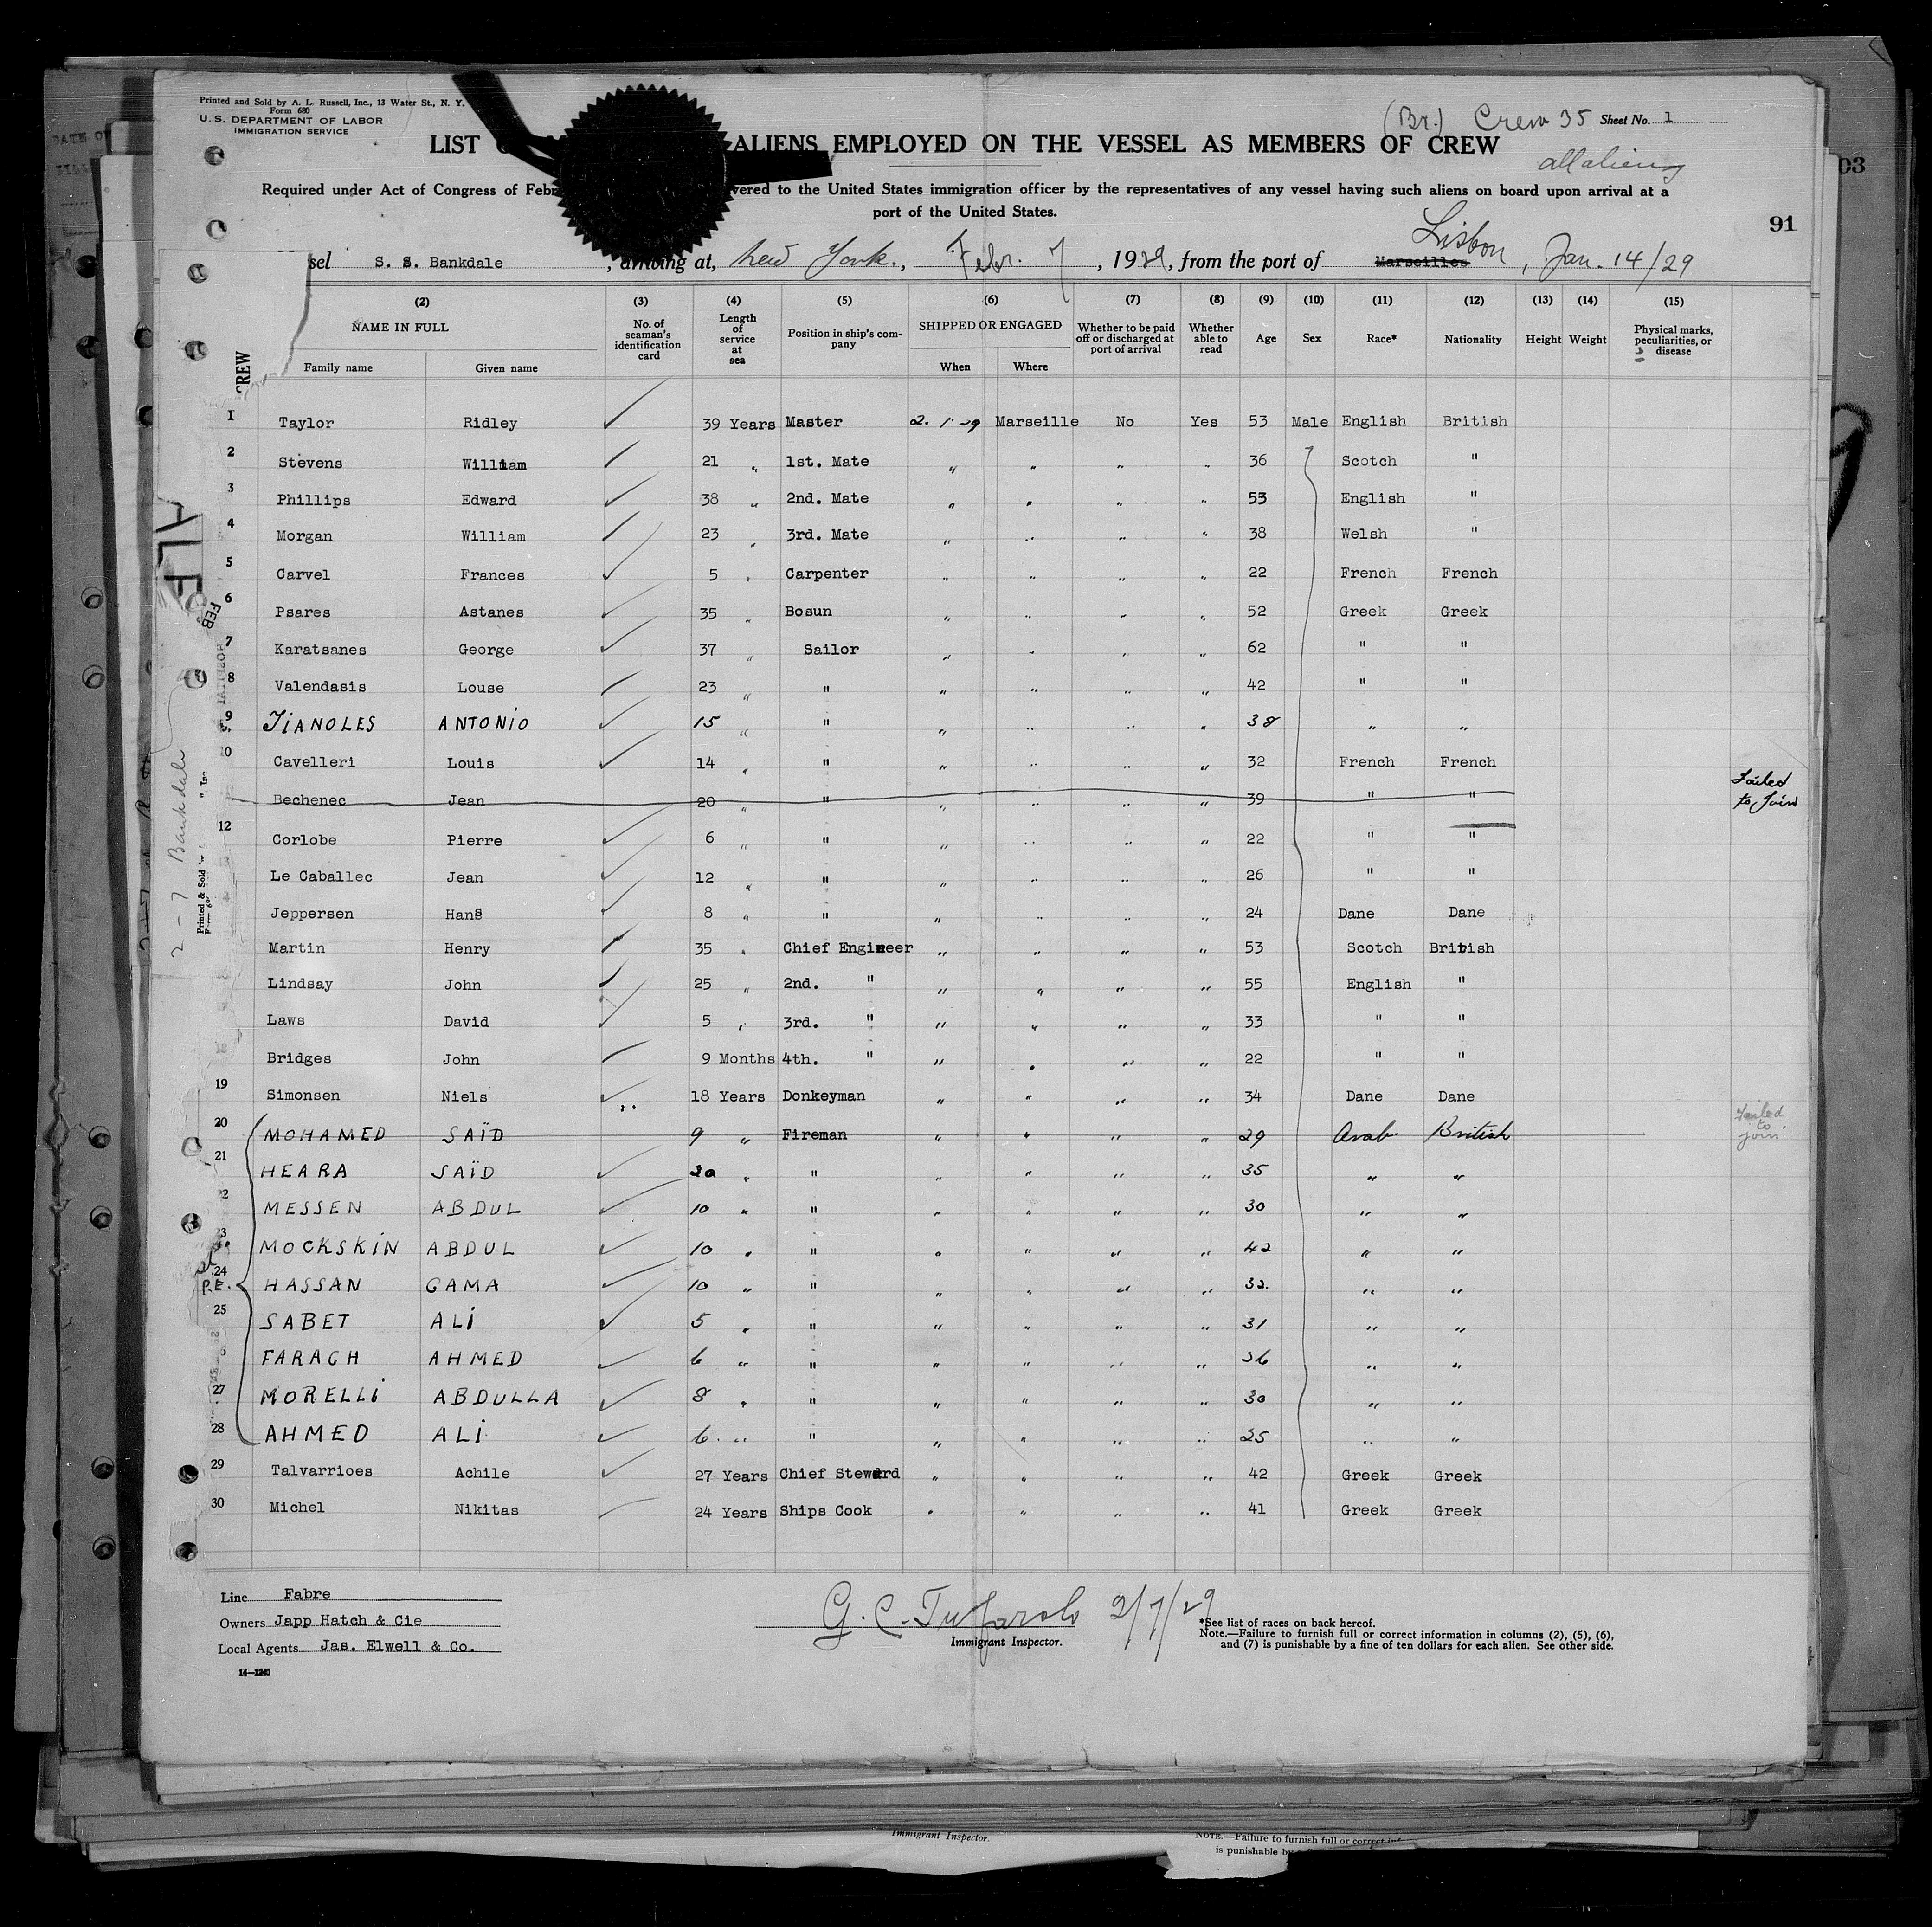 Printed and Sold by A. L. Russell, Inc., 13 Water St., N. Y.
Form 680
U. S. DEPARTMENT OF LABOR
IMMIGRATION SERVICE
(Br.) Crew 35 Sheet No. 1
LIST ALIENS EMPLOYED ON THE VESSEL AS MEMBERS OF CREW
all aliens
Required under Act of Congress of Febr vered to the United States immigration officer by the representatives of any vessel having such aliens on board upon arrival at a
port of the United States.
91
sel S. S. Bankdale , arriving at, New York. , Febr. 7 , 1929, from the port of Marseilles Lisbon , Jan. 14/29
(2) (3) (4) (5) (6) (7) (8) (9) (10) (11) (12) (13) (14) (15)
CREW NAME IN FULL Family name Given name No. of seaman's identification card Length of service at sea Position in ship's company SHIPPED OR ENGAGED When Where Whether to be paid off or discharged at port of arrival Whether able to read Age Sex Race* Nationality Height Weight Physical marks, peculiarities, or disease
1 Taylor Ridley 39 Years Master 2. 1. 29 Marseille No Yes 53 Male English British
2 Stevens William 21 " 1st. Mate " " " " 36 Scotch "
3 Phillips Edward 38 " 2nd. Mate " " " " 53 English "
4 Morgan William 23 " 3rd. Mate " " " " 38 Welsh "
5 Carvel Frances 5 " Carpenter " " " " 22 French French
6 Psares Astanes 35 " Bosun " " " " 52 Greek Greek
7 Karatsanes George 37 " Sailor " " " " 62 " "
8 Valendasis Louse 23 " " " " " " 42 " "
9 JIANOLES ANTONIO 15 " " " " " " 38 " "
10 Cavelleri Louis 14 " " " " " " 32 French French
Bechenec Jean 20 " " " " " " 39 " " Failed to Join
12 Corlobe Pierre 6 " " " " " " 22 " "
Le Caballec Jean 12 " " " " " " 26 " "
Jeppersen Hans 8 " " " " " " 24 Dane Dane
Martin Henry 35 " Chief Engineer " " " " 53 Scotch British
Lindsay John 25 " 2nd. " " " " " 55 English "
Laws David 5 " 3rd. " " " " " 33 " "
18 Bridges John 9 Months 4th. " " " " " 22 " "
19 Simonsen Niels 18 Years Donkeyman " " " " 34 Dane Dane
20 MOHAMED SAÏD 9 " Fireman " " " " 29 Arab. British Failed to join.
21 HEARA SAÏD 20 " " " " " " 35 " "
22 MESSEN ABDUL 10 " " " " " " 30 " "
23 MOCKSKIN ABDUL 10 " " " " " " 42 " "
24 HASSAN GAMA 10 " " " " " " 32. " "
P.E.
25 SABET ALI 5 " " " " " " 31 " "
FARAGH AHMED 6 " " " " " " 36 " "
27 MORELLI ABDULLA 8 " " " " " " 30 " "
28 AHMED ALI 6 " " " " " " 25 " "
29 Talvarrioes Achile 27 Years Chief Steward " " " " 42 Greek Greek
30 Michel Nikitas 24 Years Ships Cook " " " " 41 Greek Greek
2 - 7 Bankdale
Printed & Sold
FEB
Line Fabre
Owners Japp Hatch & Cie
Local Agents Jas. Elwell & Co.
14—1240
G. C. Tufarolo 2/7/29
Immigrant Inspector.
*See list of races on back hereof.
Note.—Failure to furnish full or correct information in columns (2), (5), (6),
and (7) is punishable by a fine of ten dollars for each alien. See other side.
Immigrant Inspector.
NOTE.—Failure to furnish full or correct
is punishable by